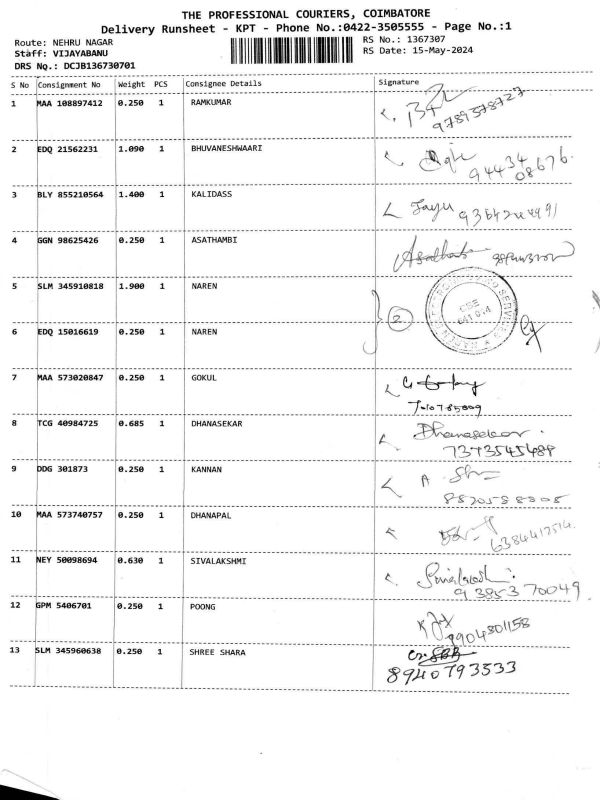 THE PROFESSIONAL COURIERS, COIMBATORE
Delivery Runsheet - KPT - Phone No.:0422-3505555 - Page No.:1
Route: NEHRU NAGAR RS No.: 1367307
Staff: VIJAYABANU RS Date: 15-May-2024
DRS No.: DCJB136730701
S No Consignment No Weight PCS Consignee Details Signature
1 MAA 108897412 0.250 1 RAMKUMAR
9789378727
2 EDQ 21562231 1.090 1 BHUVANESHWAARI
94434
08676.
3 BLY 855210564 1.400 1 KALIDASS
4 GGN 98625426 0.250 1 ASATHAMBI
5 SLM 345910818 1.900 1 NAREN
2
6 EDQ 15016619 0.250 1 NAREN
7 MAA 573020847 0.250 1 GOKUL
8 TCG 40984725 0.685 1 DHANASEKAR Dhanasekar.
7373545488
9 DDG 301873 0.250 1 KANNAN
10 MAA 573740757 0.250 1 DHANAPAL
6384412514.
11 NEY 50098694 0.630 1 SIVALAKSHMI
9385370049.
12 GPM 5406701 0.250 1 POONG
9904301158
13 SLM 345960638 0.250 1 SHREE SHARA
8940793533